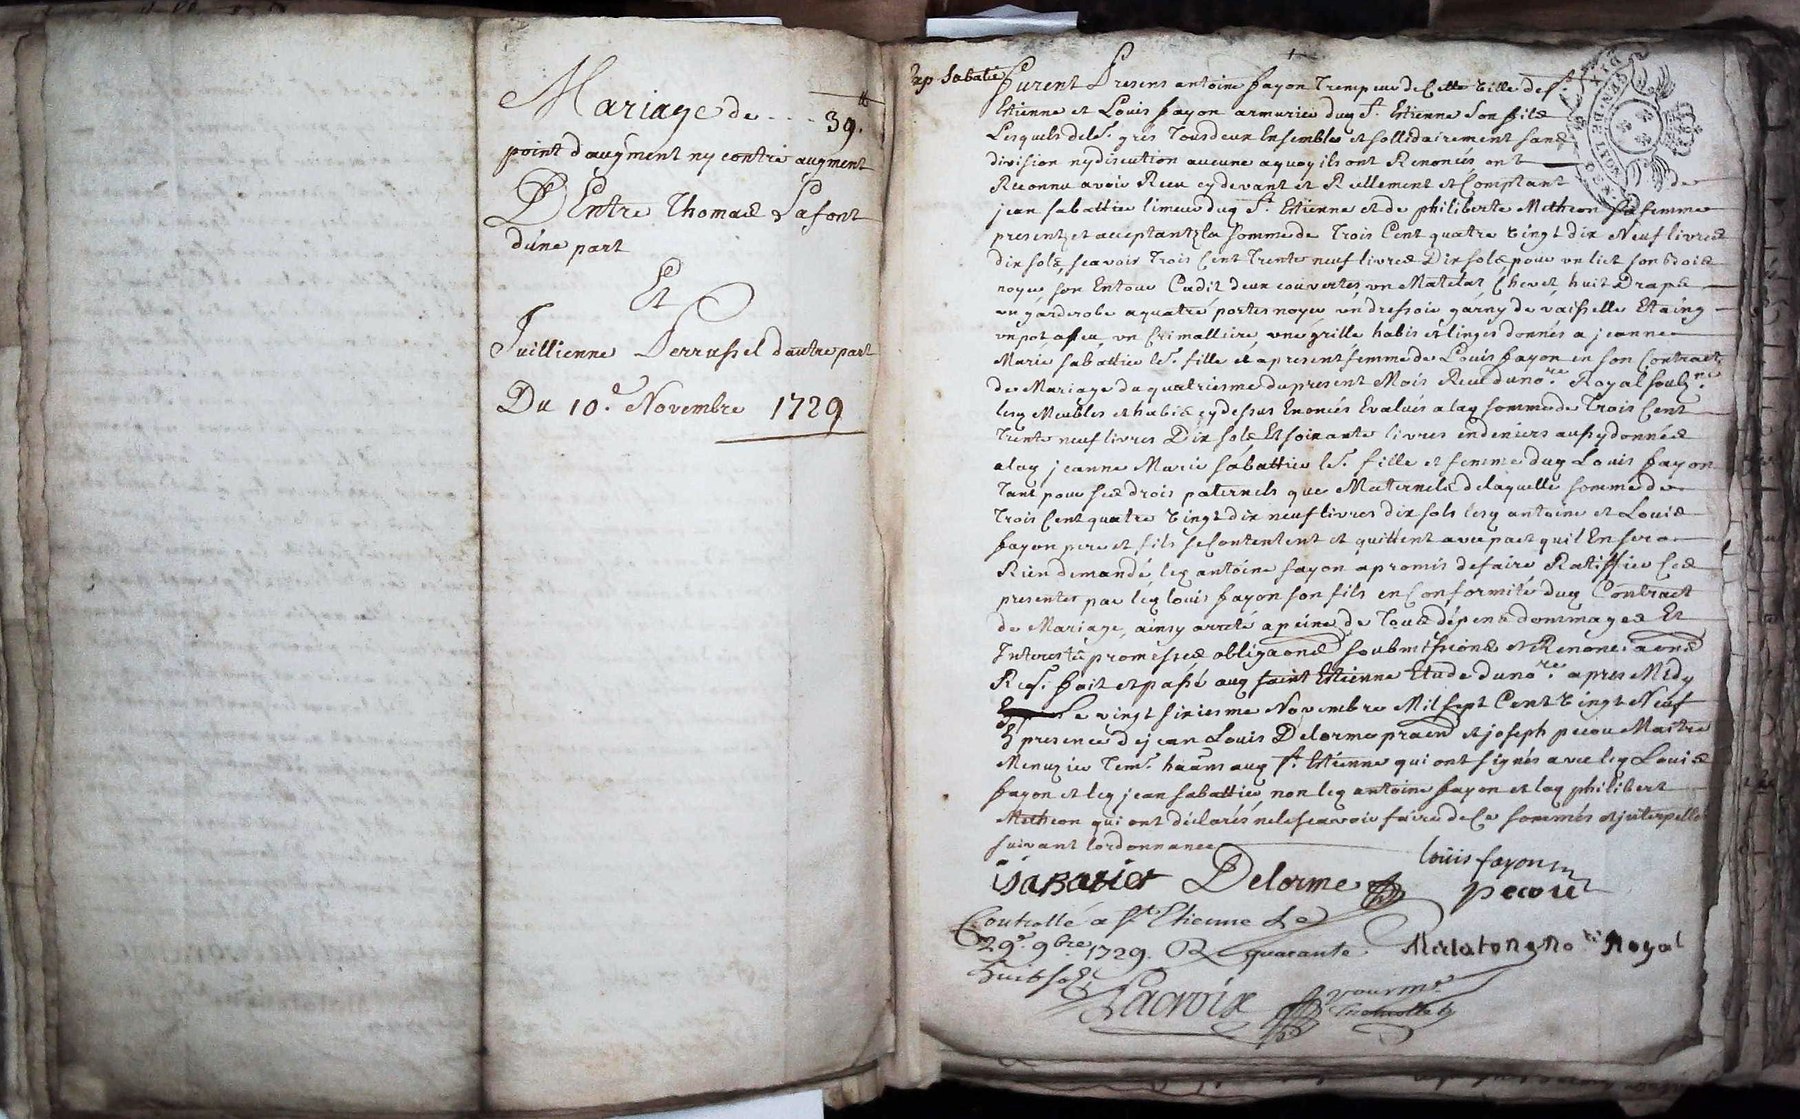 Mariage de ---- 39.tt
point daugment ny contre augment
Dentre Thomas Lafont
d'une part
Et
Juillienne Perrussel dautre part
Du 10.e Novembre 1729
exp Sabatie
Furent Presens antoine fayon Trempeur de Cette Ville de St
Etienne et Louis fayon armurier dug St. Etienne Son fils
Lesquels de Lrs. gres Tous deux Ensembles et sollidairement sans
division ny discution aucune aquoy ils ont Renoncés ont
Reconnu avoir Receu cy devant et Reellement et Comptant de
jean sabattier limeur dug St. Etienne et de philiberte Metheon sa femme
presentz et acceptantz la somme de Trois Cent quatre Vingt dix Neuf livres
dix sols, scavoir Trois Cent Trente neuf livres Dix sols pour un lict son bois
noyer son Entour Cadit deux couvertes un Matelat Chevet huit Draps
un garderobe a quatre portes noyer un dressoir garny de vaisselle Etaing
un pot a feu, un Crimalliere, une grille habis et linges donnés a jeanne
Marie sabattier lr. fille et apresent femme de Louis fayon en son Contract
de Mariage du quatriesme du present Mois Receu du nore. Royal soubzne.
lesq Meubles et habis cy dessus Enoncés Evalués a lag somme de Trois Cent
Trente neuf livres Dix sols Et soixante livres en deniers aussy donnés
a lag jeanne Marie sabattier lr. fille et femme dug Louis fayon
Tant pour ses drois paternels que Maternels de laquelle somme de
Trois Cent quatre Vingt dix neuf livres dix sols lesq antoine et Louis
fayon pere et fils se Contentent et quittent avec pact quil En sera
Rien demandé, leq antoine fayon a promis de faire Ratiffier Ces
presentes par leq louis fayon son fils en Conformité dug Contract
de Mariage, ainsy arreté a peine de Tous dépens dommages Et
Interests promesses obligaons soubmissions et Renonciaons
Req. fait et passé aug saint Etienne Etude du nore. apres Midy
Le vingt sixiesme Novembre Mil sept Cent Vingt Neuf
En presence de jean Louis Delorme praen et joseph pecou Maitre
Menuzier Tems. haans aug St. Etienne qui ont signés avec leq Louis
fayon et leq jean sabattier, non leq antoine fayon et lag philibert
Metheon qui ont déclarés ne le scavoir faire de Ce sommés et interpellés
suivant lordonnance
louis fayon
isabatier Delorme pecou
Controllé a St. Etienne Le
29e. 9bre. 1729. R quarante
huit sols
Lacroix